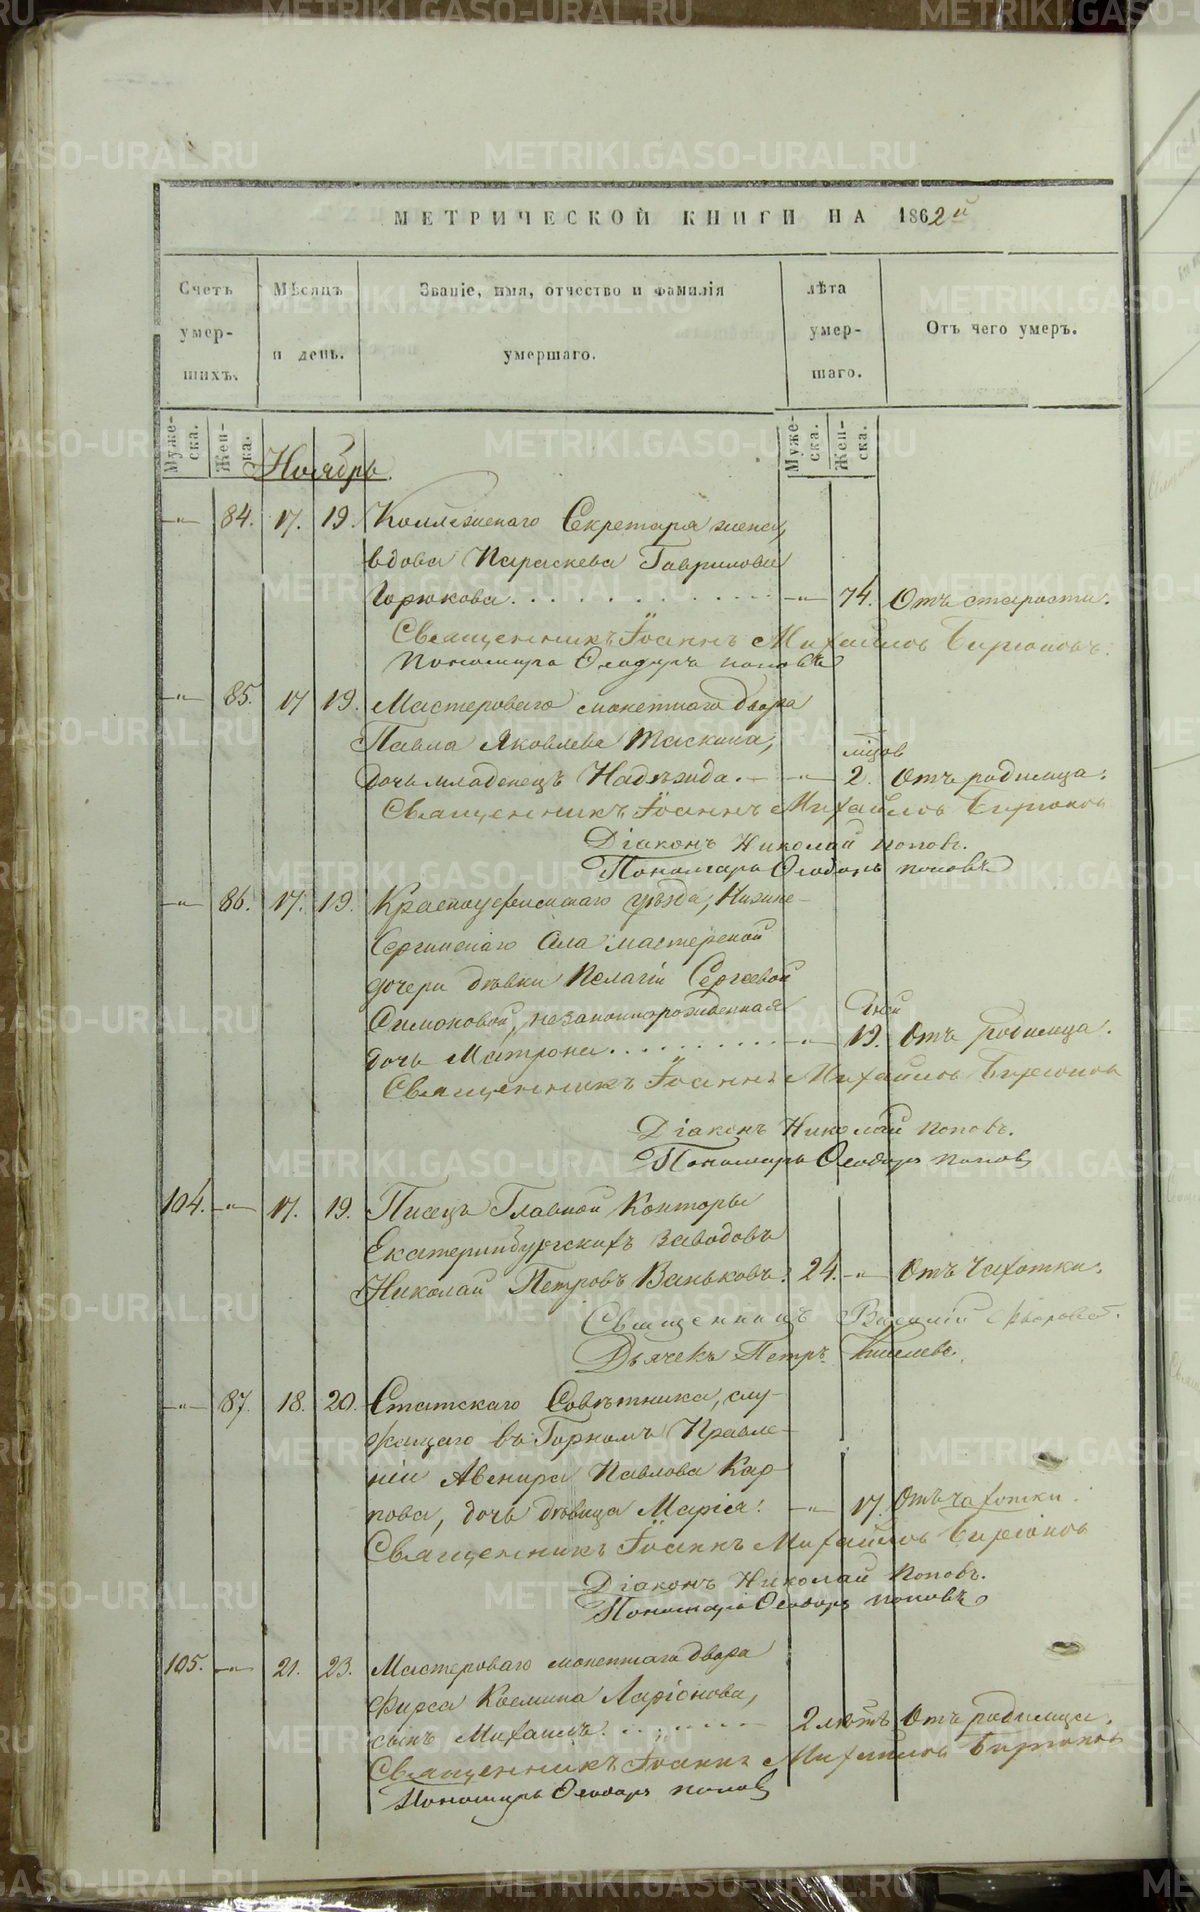 МЕТРИЧЕСКОЙ КНИГИ НА 1862й
Счетъ умер-шихъ.
Мѣсяцъ и день.
Званіе, имя, отчество и фамилія умершаго.
лѣта умер-шаго.
Отъ чего умеръ.
Муже-ска. Жен-ка. Муже-ска. Жен-ска.
Ноябрь.
—"— 84. 17. 19. Коллежскаго Секретаря жена,
вдова Параскева Гаврилова
Горюкова. —"— 74. Отъ старости.
Священникъ Іоаннъ Михайловъ Бирюковъ.
Пономарь Ѳеодоръ Поповъ
—"— 85. 17 19. Мастероваго монетнаго двора
Павла Яковлева Таскина, мцов
дочь младенецъ Надежда. —"— 2. Отъ родимца.
Священникъ Іоаннъ Михайловъ Бирюков
Діаконъ Николай Поповъ.
Пономарь Ѳеодоръ Поповъ
—"— 86. 17. 19. Красноуфимскаго уѣзда, Нижне-
Сергинскаго села мастерской
дочери дѣвки Пелагіи Сергеевой
Симоновой, незаконнорожденная дней
дочь Матрона. —"— 19. Отъ родимца.
Священникъ Іоаннъ Михайловъ Бирюков
Діаконъ Николай Поповъ.
Пономарь Ѳеодоръ Попов
104. —"— 17. 19. Писецъ Главной Конторы
Екатеринбургскихъ заводовъ
Николай Петровъ Ваньковъ. 24. —"— Отъ Чахотки.
Священникъ Василій
Дьячекъ Петръ Киселевъ.
—"— 87. 18. 20. Статскаго Совѣтника, слу-
жащаго въ Горномъ Правле-
ніи Авенира Павлова Кар-
пова, дочь дѣвица Марія. —"— 17. Отъ чахотки.
Священникъ Іоаннъ Михайловъ Бирюков
Діаконъ Николай Поповъ.
Пономарь Ѳеодоръ Поповъ
105. —"— 21. 23. Мастероваго монетнаго двора
Фирса Космина Ларіонова,
сынъ Михаилъ. 2 лѣтъ Отъ родимца.
Священникъ Іоаннъ Михайловъ Бирюков
Пономарь Ѳеодоръ Попов
METRIKI.GASO-URAL.RU